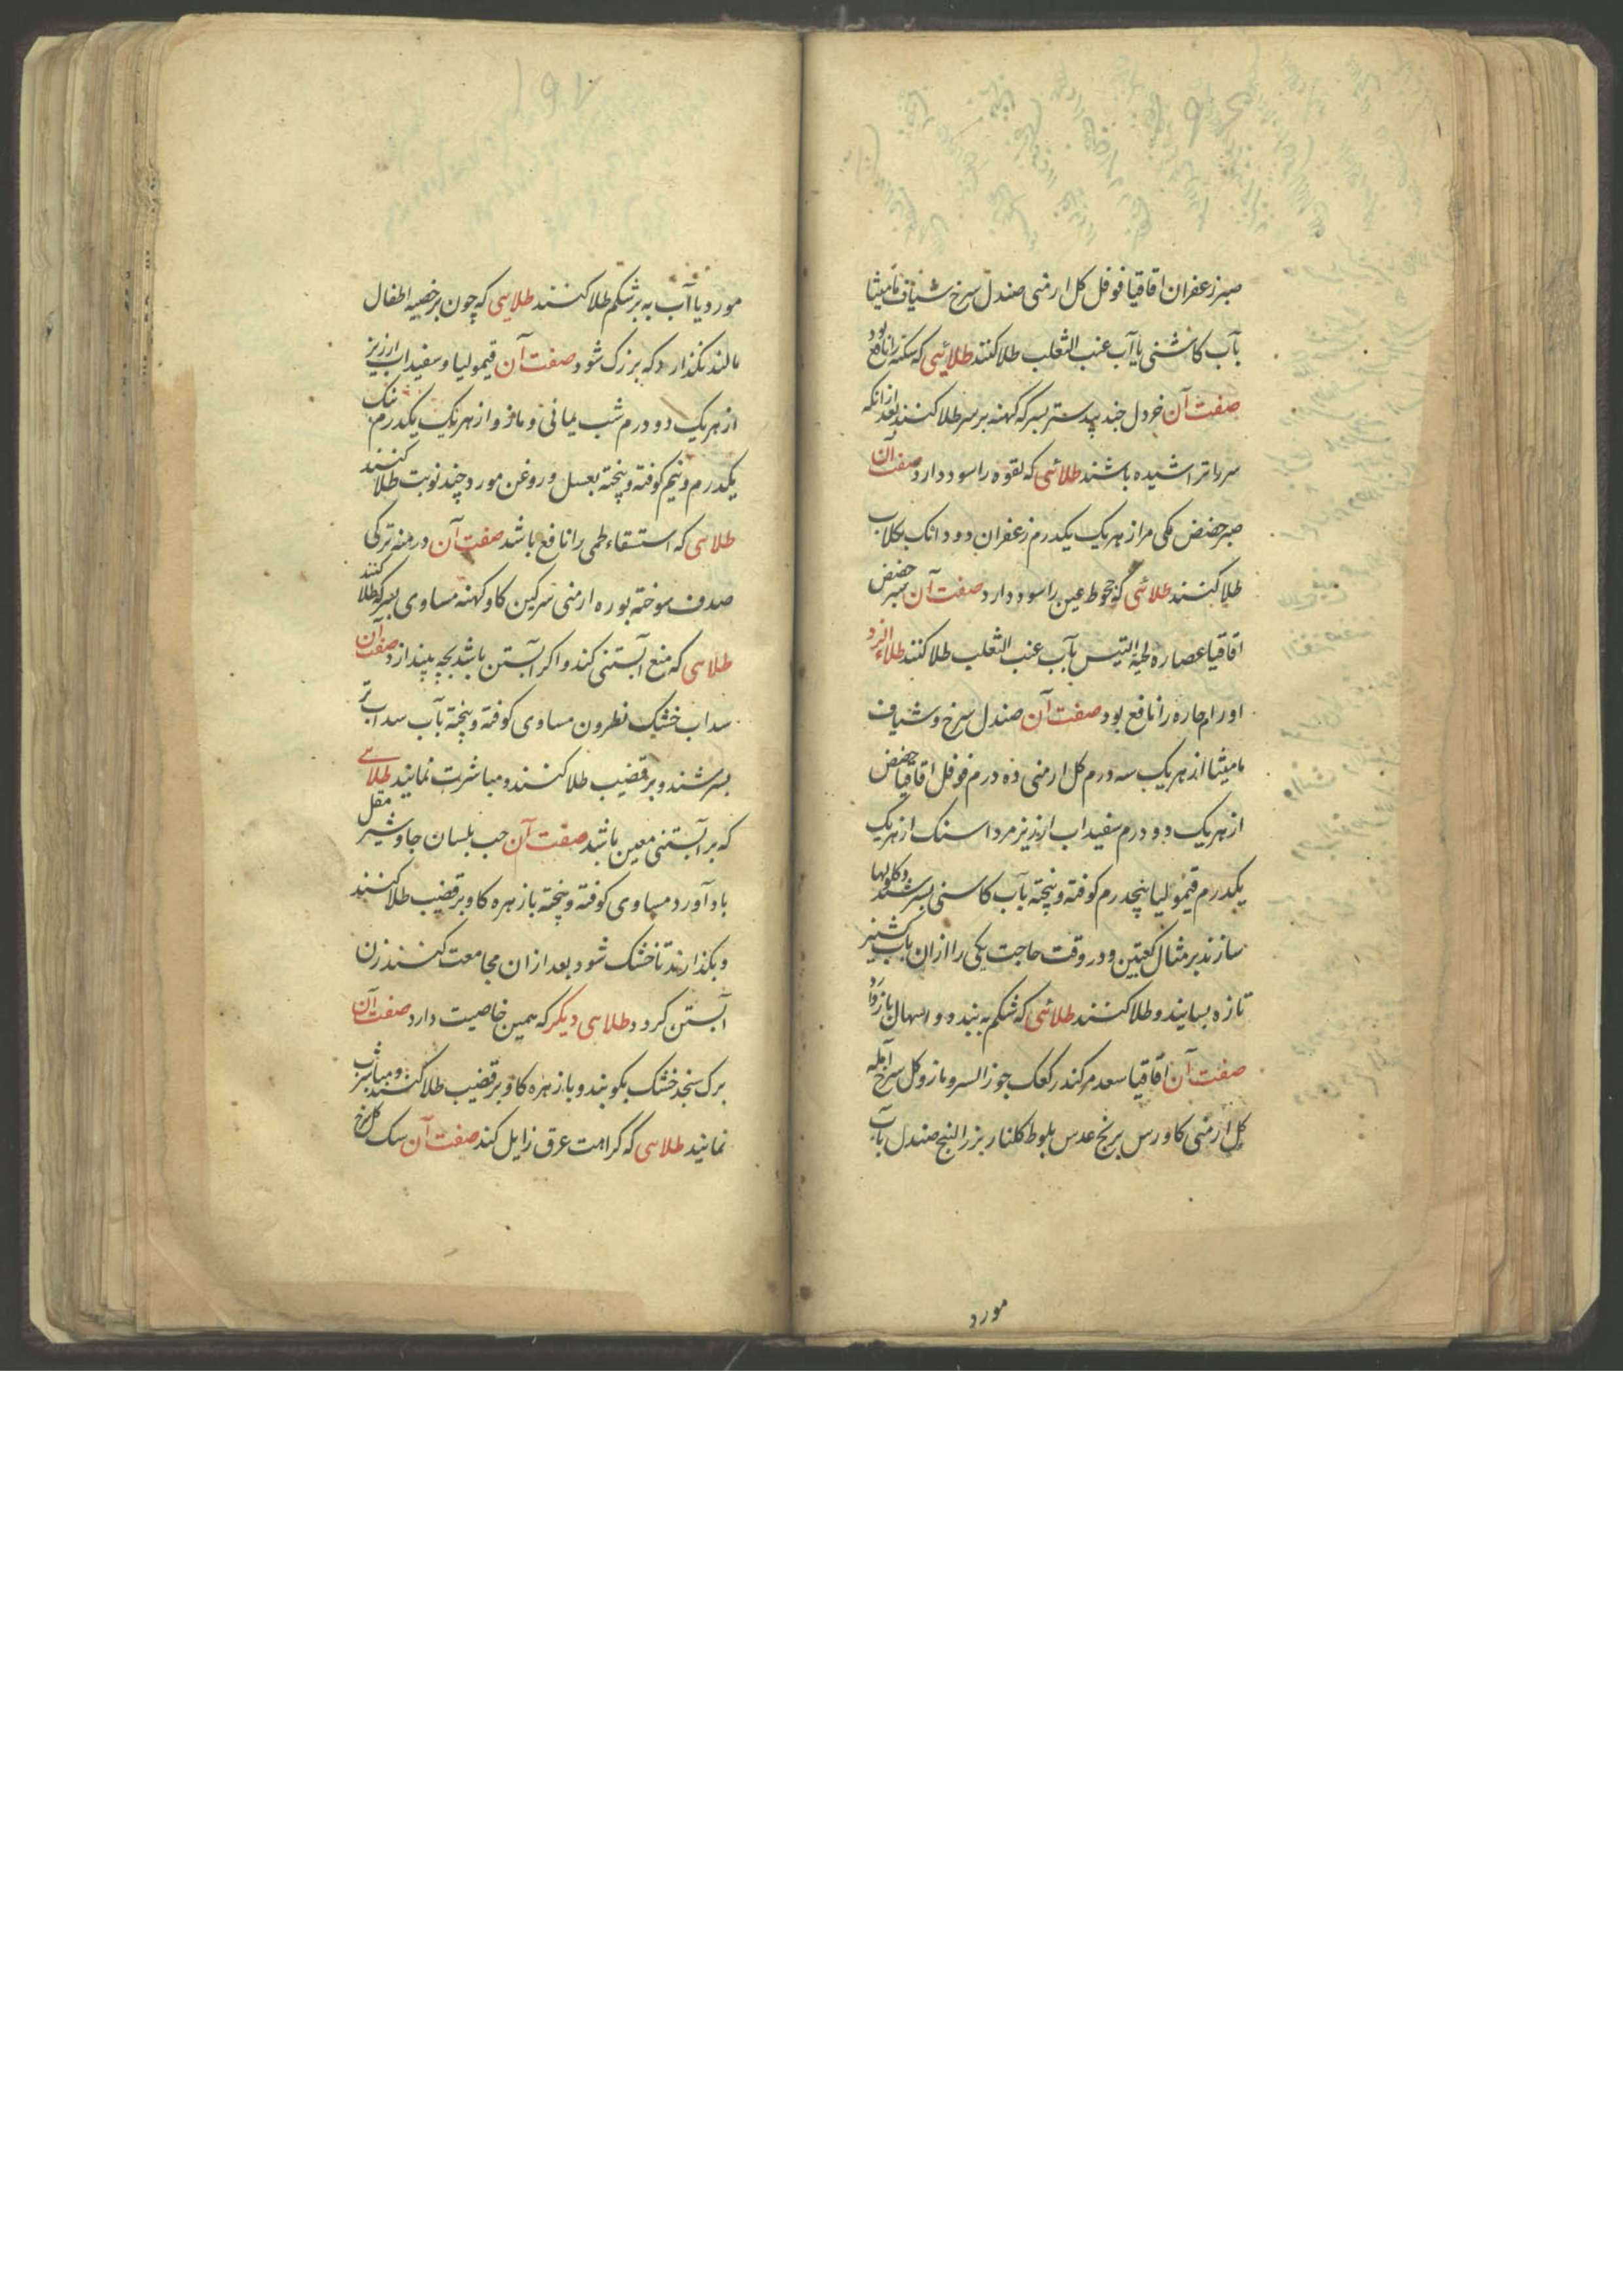 صبر زعفران اقاقیا فوفل کل ارمنی صندل سرخ شیاف مامیثا
بآب کاسنی یا آب عنب الثعلب طلا کنند طلائی که سکته را نافع بود
صفت آن خردل جند بیدستر بسرکه کهنه بر سر طلا کنند بعد از انکه
سر را تراشیده باشند طلائی که لقوه را سود دارد صفت آن
صبر حضض مکی مر از هر یک یکدرم زعفران دو دانک بکلاب
طلا کنند طلائی که جحوظ عین را سود دارد صفت آن صبر حضض
اقاقیا عصاره لحیة التیس بآب عنب الثعلب طلا کنند طلاء الزرد
اورام حاره را نافع بود صفت آن صندل سرخ و شیاف
مامیثا از هر یک سه درم کل ارمنی ده درم فوفل اقاقیا حضض
از هر یک دو درم سفیداب ارزیز مرداسنک از هر یک
یکدرم قیمولیا پنجدرم کوفته و پخته بآب کاسنی بسرشند و کلولها
سازند بر مثال کعبتین و در وقت حاجت یکی را ازان بآب کشنیز
تازه بسایند و طلا کنند طلائی که شکم به بندد و اسهال باز دارد
صفت آن اقاقیا سعد مر کندر کعک جوز السرو مازو کل سرخ آمله
کل ارمنی کاورس برنج عدس بلوط کلنار بزر البنج صندل بآب
مورد
مورد یا آب به بر شکم طلا کنند طلایی که چون بر خصیه اطفال
مالند نکذارد که بزرک شود صفت آن قیمولیا و سفیداب ارزیز
از هر یک دو درم شب یمانی و مازو از هر یک یکدرم
یکدرم و نیم کوفته و پخته بعسل و روغن مورد چند نوبت طلا کنند
طلاهی که استسقاء طمی را نافع باشد صفت آن درمنه ترکی
صدف سوخته بوره ارمنی سرکین کاو کهنه مساوی بسرکه طلا کنند
طلاهی که منع آبستنی کند و اکر آبستن باشد بچه بیندازد صفت آن
سداب خشک نطرون مساوی کوفته و پخته بآب سداب تر
بسرشند و بر قضیب طلا کنند و مباشرت نمایند طلاهی
که بر آبستنی معین باشد صفت آن حب بلسان جاوشیر مقل
باد آورد مساوی کوفته و پخته بازهره کاو بر قضیب طلا کنند
و بکذارند تا خشک شود بعد ازان مجامعت کنند زن
آبستن کردد طلاهی دیکر که همین خاصیت دارد صفت آن
برک سنجد خشک بکوبند و بازهره کاو بر قضیب طلا کنند و مباشرت
نمایند طلاهی که کراهت عرق زایل کند صفت آن سک کل سرخ